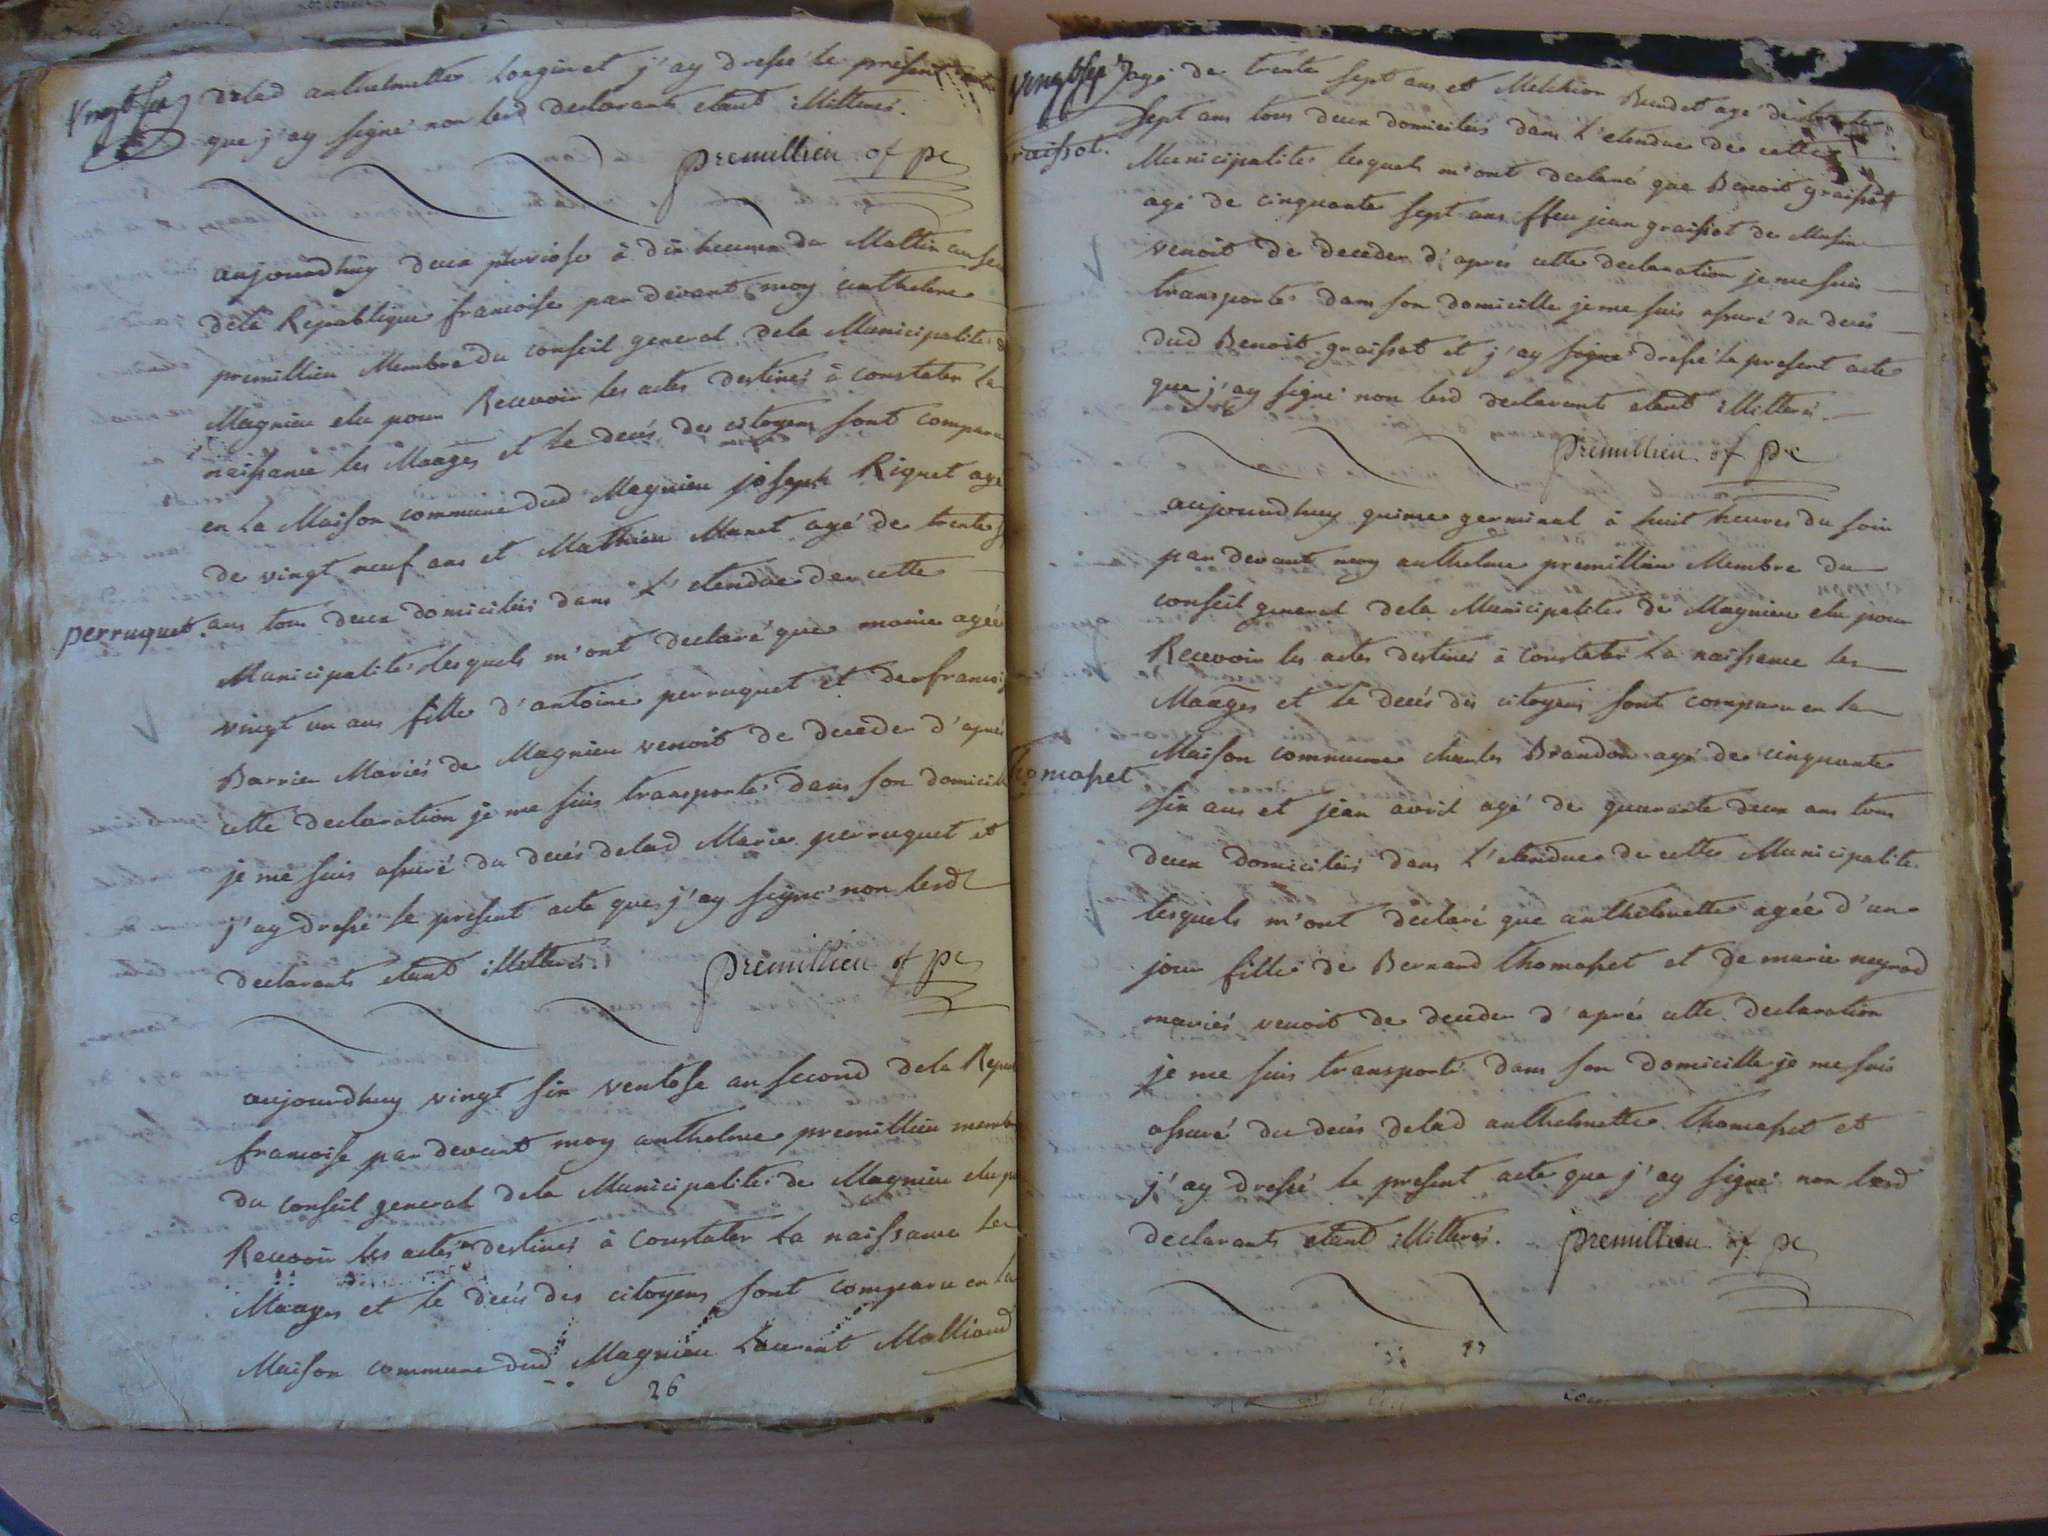 Vingt six
delad anthelmette Longin et j'ay dressé le présent acte
que j'ay signé non lesd declarants etant illitterés.
premillieu of pc
aujourdhuy deux pluviose à dix heures du Mattin an second
dela Republique francoise par devant moy anthelme
premillieu Membre du conseil general dela Municipalité de
Magnieu elu pour Recevoir les actes destinés à constater la
naissance les Maages et le decés des citoyens sont comparu
en la Maison commune dud Magnieu joseph Riquet agé
de vingt neuf ans et Mathieu Munet agé de trente
perruquet. ans tous deux domiciliés dans l'etendue de cette
Municipalité lesquels m'ont declaré que marie agée
vingt un ans fille d'antoine perruquet et de
Barrieu Mariés de Magnieu venoit de deceder d'aprés
cette declaration je me suis transporté dans son domicille
je me suis assuré du decés delad Marie perruquet et
j'ay dressé le present acte que j'ay signé non lesd
declarants etant illitterés. premillieu of pc
aujourdhuy vingt six ventose an second dela
francoise par devant moy anthelme premillieu membre
du conseil general dela Municipalité de Magnieu elu
Recevoir les actes destinés à constater la naissance les
Maages et le decés des citoyens sont comparu en la
Maison commune dud Magnieu Laurent Molliand
26
Vingt sept
agé de trente sept ans et Melchior Bundet agé de
graissot.
sept ans tous deux domiciliés dans l'etendue de cette
Municipalité lesquels m'ont declaré que Benoit graissot
agé de cinquante sept ans ffeu jean graissot de Musin
venoit de deceder d'aprés cette declaration je me suis
transporté dans son domicille je me suis assuré du decés
dud Benoit graissot et j'ay signé dressé le present acte
que j'ay signé non lesd declarants etant illitterés.
premillieu of pc
aujourdhuy quinze germinal à huit heures du soir
par devant moy anthelme premillieu Membre du
conseil general dela Municipalité de Magnieu elu pour
Recevoir les actes destinés à constater la naissance les
Maages et le decés des citoyens sont comparu en la
thomasset
Maison commune charles Brandon agé de cinquante
six ans et jean avril agé de quarante deux ans tous
deux domiciliés dans l'etendue de cette Municipalité
lesquels m'ont declaré que anthelmette agée d'un
jour fille de Bernard thomasset et de marie neyrod
mariés venoit de deceder d'aprés cette declaration
je me suis transporté dans son domicille je me suis
assuré du decés delad anthelmette thomasset et
j'ay dressé le present acte que j'ay signé non lesd
declarants etant illitterés. premillieu of pc